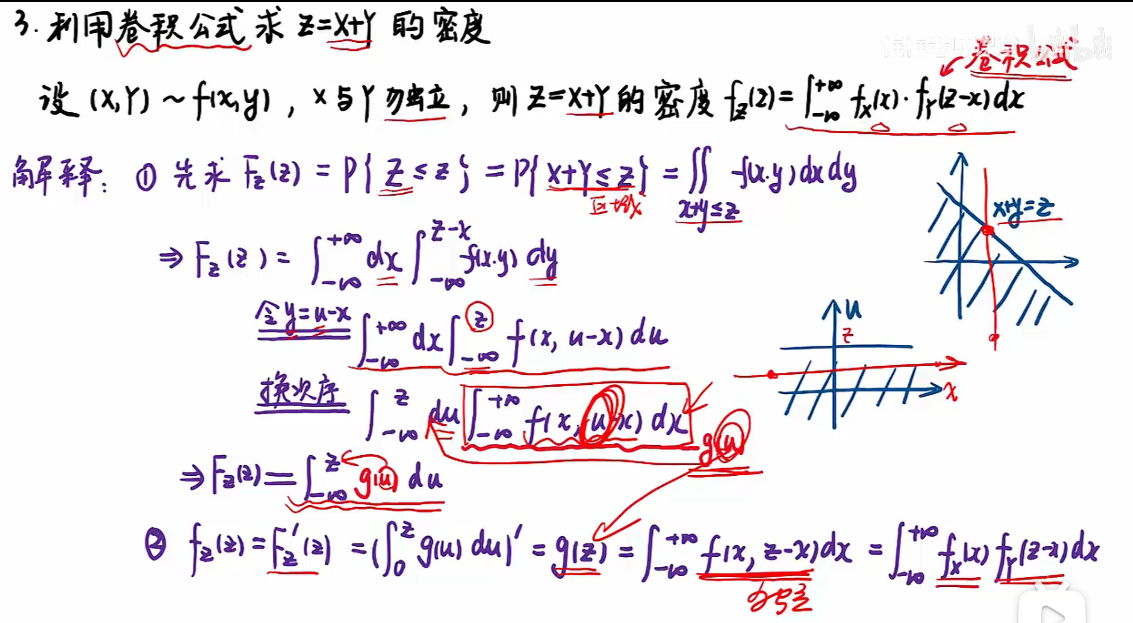 3. 利用卷积公式求 Z=X+Y 的密度
卷积公式
设 (X,Y) ~ f(x,y), X与Y独立, 则 Z=X+Y 的密度 f_Z(z) = ∫_{-∞}^{+∞} f_X(x)·f_Y(z-x)dx
解释: ① 先求 F_Z(z) = P{Z≤z} = P{X+Y≤z} = ∬_{x+y≤z} f(x,y)dxdy
区域
x+y=z
⇒ F_Z(z) = ∫_{-∞}^{+∞} dx ∫_{-∞}^{z-x} f(x,y) dy
令 y=u-x ∫_{-∞}^{+∞} dx ∫_{-∞}^{z} f(x, u-x) du
u
z
x
换次序 ∫_{-∞}^{z} du ∫_{-∞}^{+∞} f(x, u-x) dx
g(u)
⇒ F_Z(z) = ∫_{-∞}^{z} g(u) du
② f_Z(z) = F_Z'(z) = (∫_{0}^{z} g(u) du)' = g(z) = ∫_{-∞}^{+∞} f(x, z-x)dx = ∫_{-∞}^{+∞} f_X(x) f_Y(z-x)dx
独立